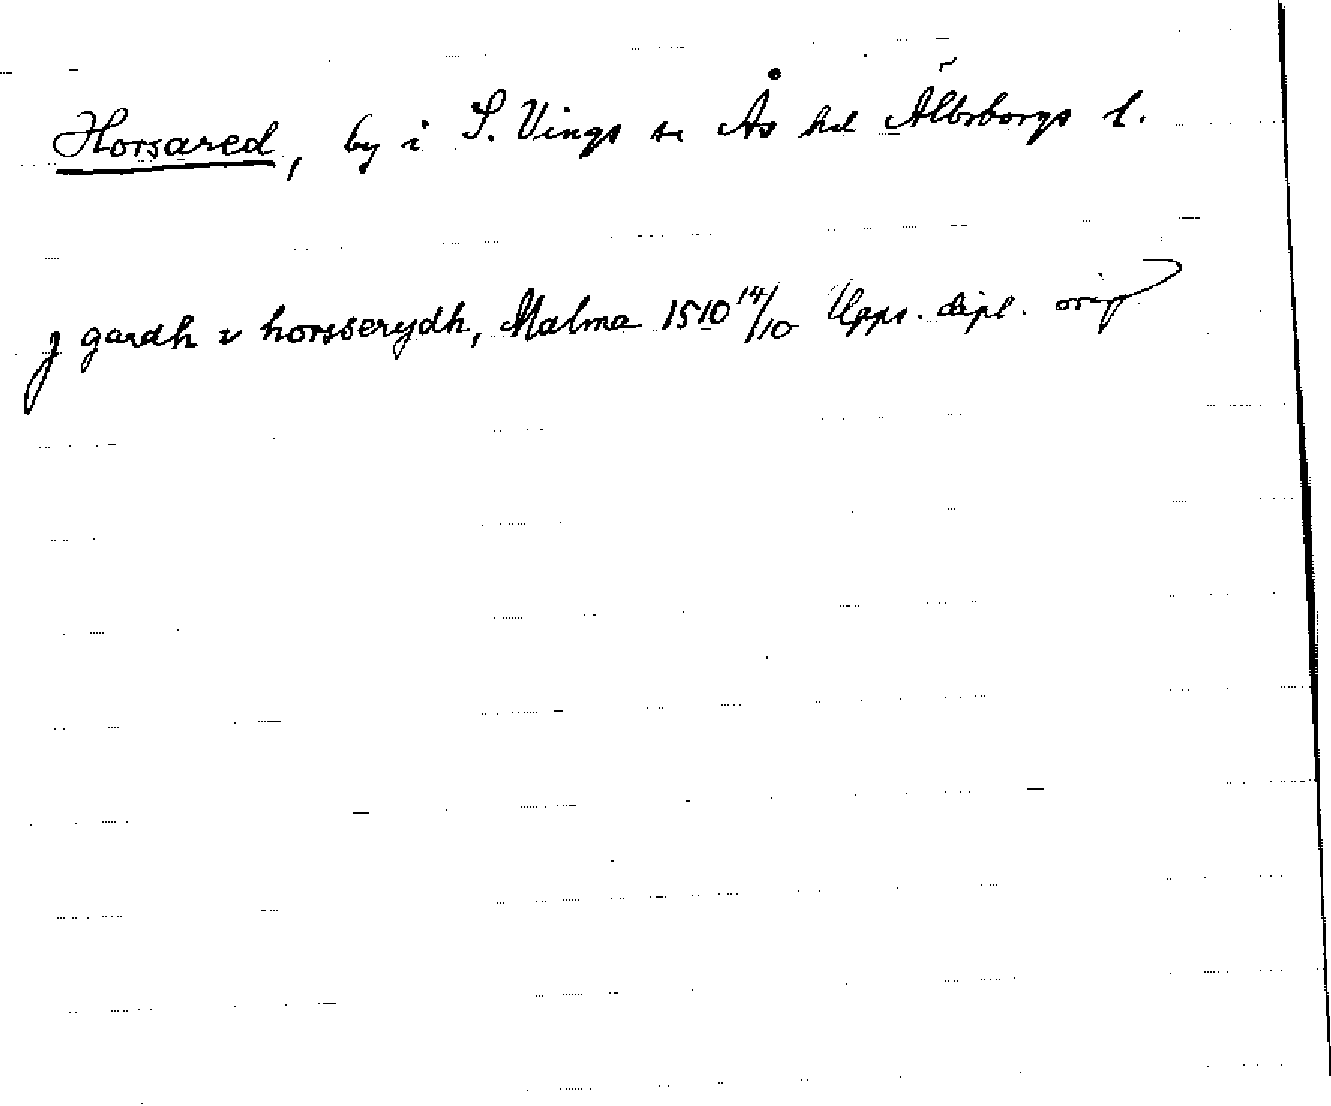 Horsared, by i S. Vings sn Ås hd Älvsborgs l.
j gardh v horsserydh, Malma 1510 14/10 Upps. dipl. orig